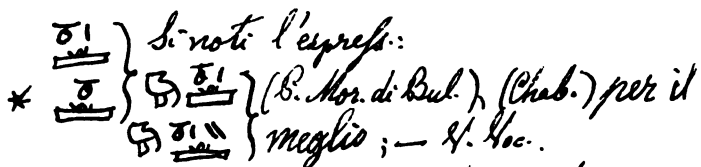 Si noti l'espress.:
* (P. Mor. di Bul.), (Chab.) per il
meglio; — V. Voc..